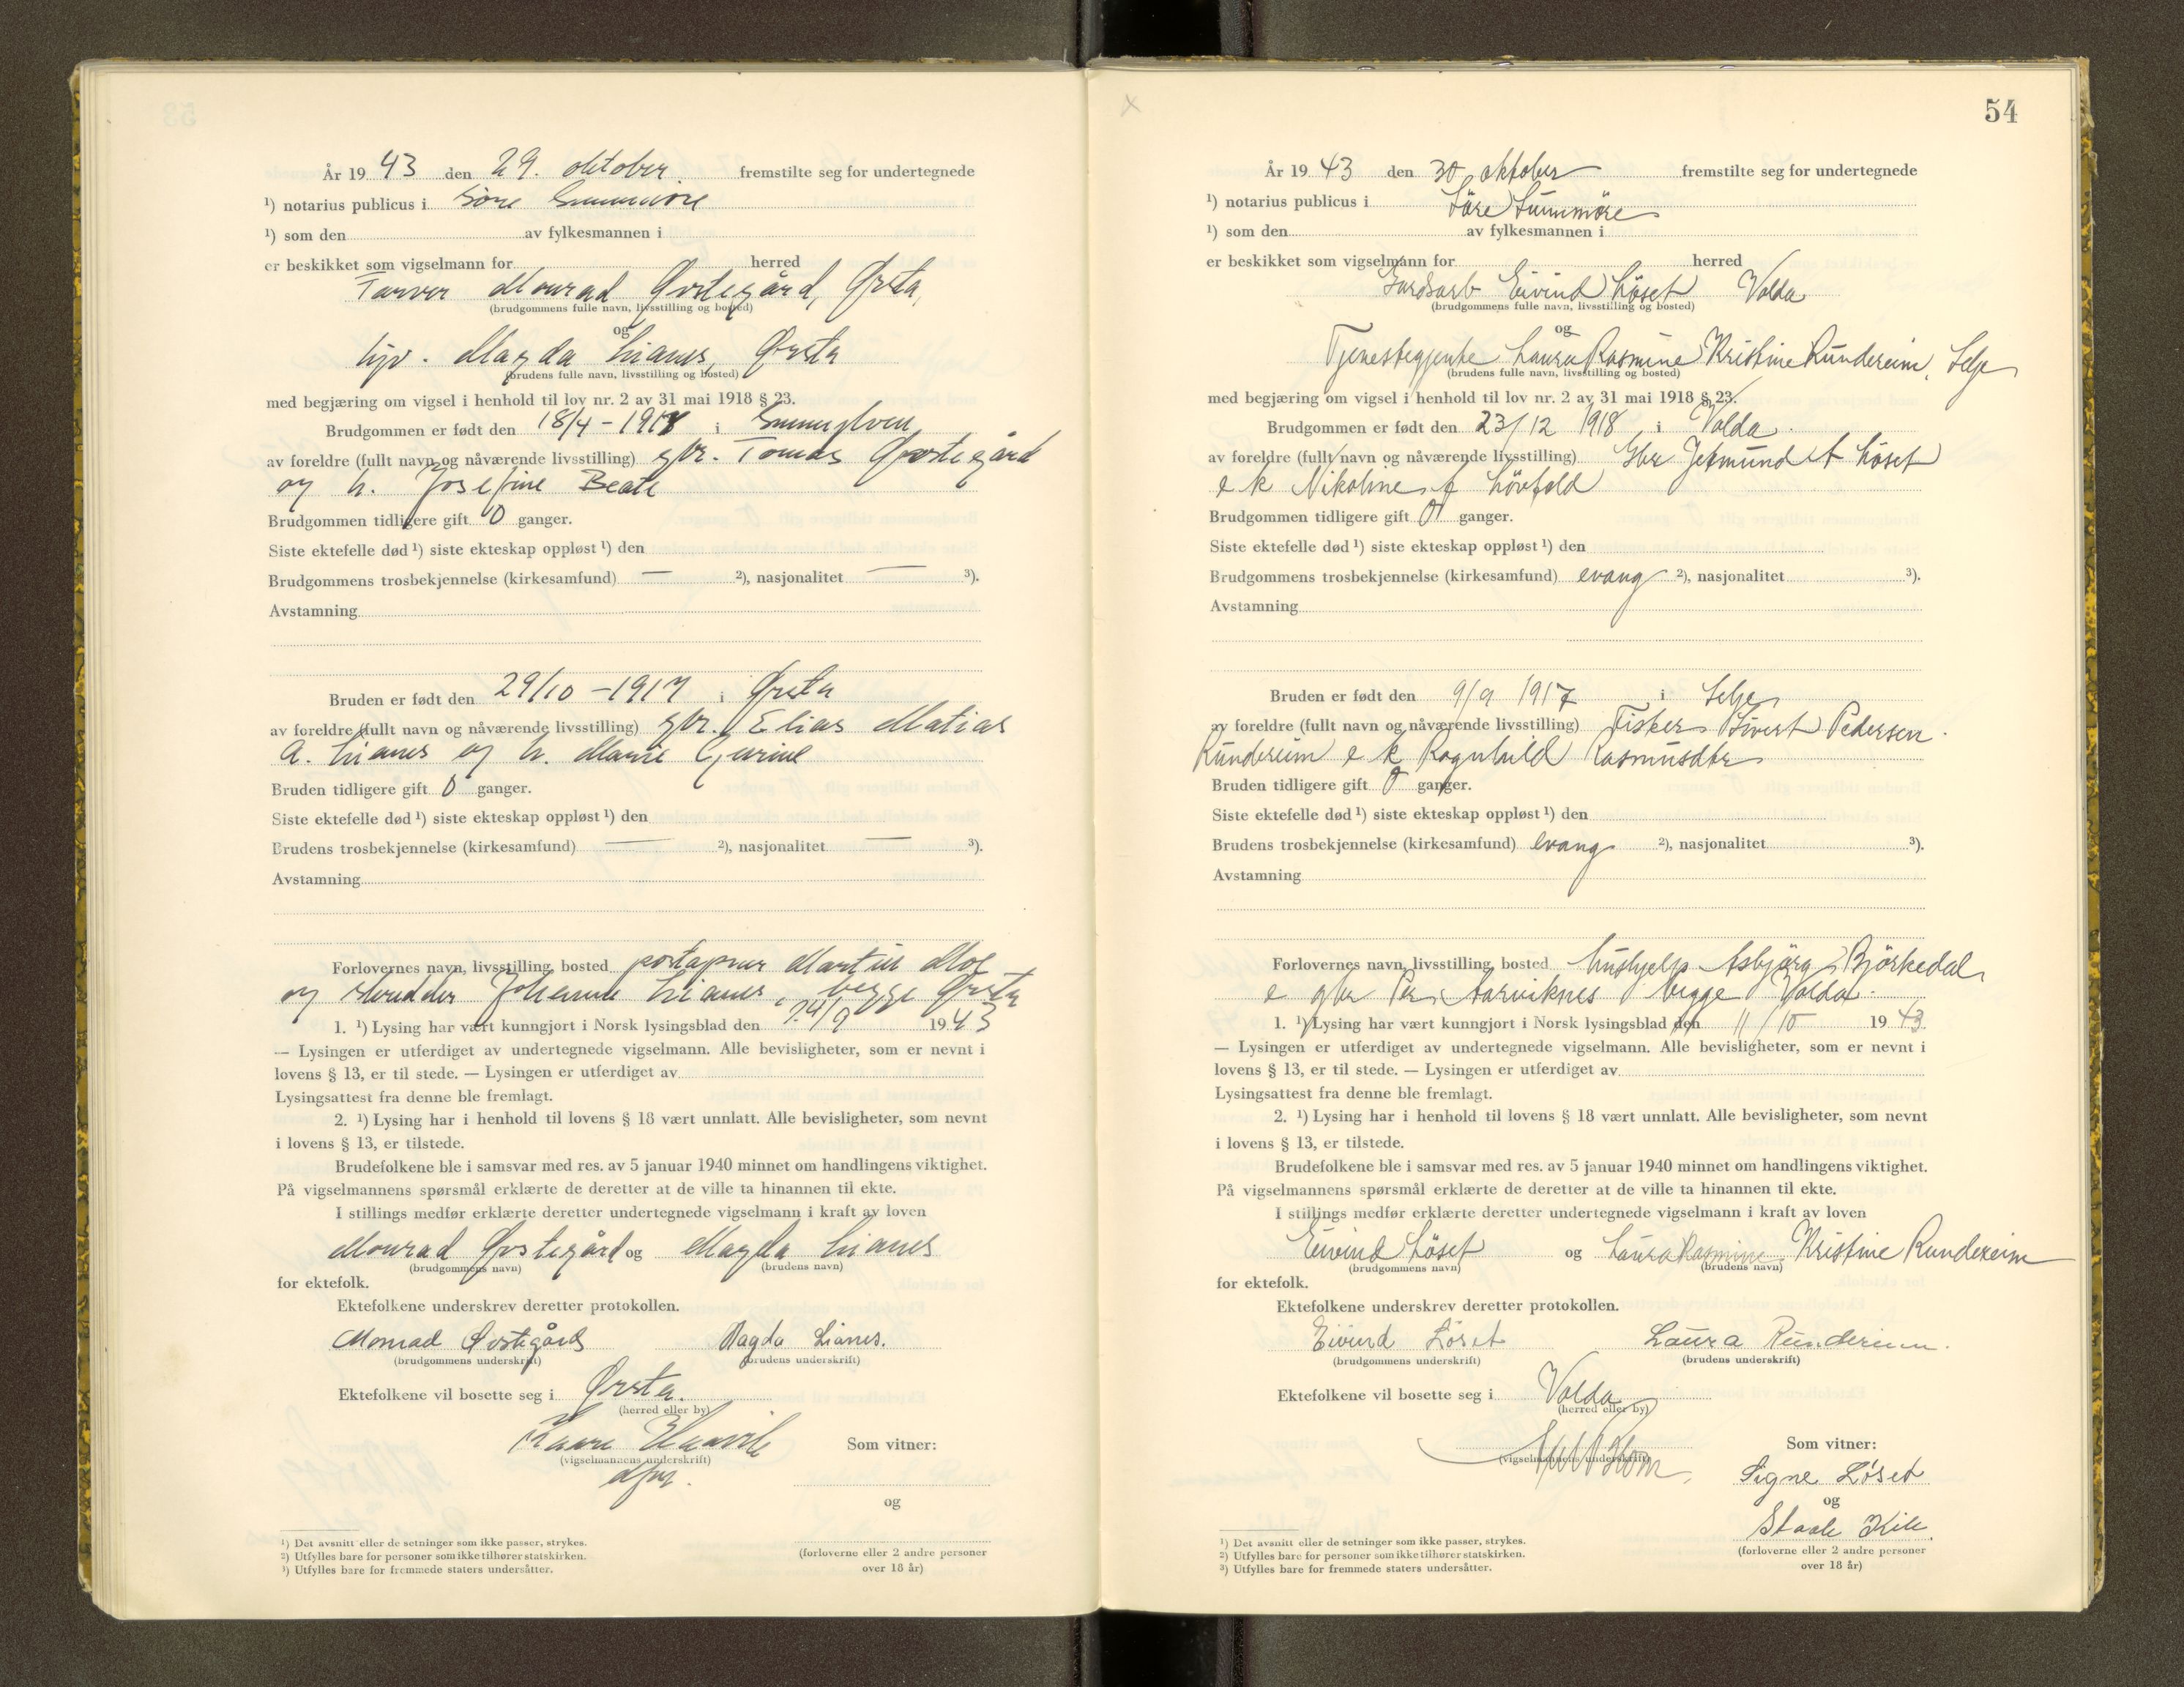 År 19 43 den 29. oktober fremstilte seg for undertegnede
¹) notarius publicus i Söre Sunnmöre
¹) som den av fylkesmannen i
er beskikket som vigselmann for herred
Farver Monrad Øvstegård, Ørsta,
(brudgommens fulle navn, livsstilling og bosted)
og
Magda Lianes, Ørsta
(brudens fulle navn, livsstilling og bosted)
med begjæring om vigsel i henhold til lov nr. 2 av 31 mai 1918 § 23.
Brudgommen er født den 18/4 - 1918 i Sunnylven
av foreldre (fullt navn og nåværende livsstilling) gbr. Tomas Øvstegård
og h. Josefine Beate
Brudgommen tidligere gift 0 ganger.
Siste ektefelle død ¹) siste ekteskap oppløst ¹) den
Brudgommens trosbekjennelse (kirkesamfund) — ²), nasjonalitet — ³).
Avstamning
Bruden er født den 29/10 - 1917 i Ørsta
av foreldre (fullt navn og nåværende livsstilling) gbr. Elias Matias
A. Lianes og h. Marie Gurine
Bruden tidligere gift 0 ganger.
Siste ektefelle død ¹) siste ekteskap oppløst ¹) den
Brudens trosbekjennelse (kirkesamfund) — ²), nasjonalitet — ³).
Avstamning
Forlovernes navn, livsstilling, bosted Martin Moe
og Lianes, begge Ørsta
1. ¹) Lysing har vært kunngjort i Norsk lysingsblad den 24/9 19 43
— Lysingen er utferdiget av undertegnede vigselmann. Alle bevisligheter, som er nevnt i
lovens § 13, er til stede. — Lysingen er utferdiget av
Lysingsattest fra denne ble fremlagt.
2. ¹) Lysing har i henhold til lovens § 18 vært unnlatt. Alle bevisligheter, som nevnt
i lovens § 13, er tilstede.
Brudefolkene ble i samsvar med res. av 5 januar 1940 minnet om handlingens viktighet.
På vigselmannens spørsmål erklærte de deretter at de ville ta hinannen til ekte.
I stillings medfør erklærte deretter undertegnede vigselmann i kraft av loven
Monrad Øvstegård og Magda Lianes
(brudgommens navn) (brudens navn)
for ektefolk.
Ektefolkene underskrev deretter protokollen.
Monrad Øvstegård Magda Lianes.
(brudgommens underskrift) (brudens underskrift)
Ektefolkene vil bosette seg i Ørsta.
(herred eller by)
Kaare
Som vitner:
(vigselmannens underskrift)
dfm.
og
¹) Det avsnitt eller de setninger som ikke passer, strykes.
²) Utfylles bare for personer som ikke tilhører statskirken.
³) Utfylles bare for fremmede staters undersåtter.
(forloverne eller 2 andre personer
over 18 år)
54
År 19 43 den 30 oktober fremstilte seg for undertegnede
¹) notarius publicus i Söre Sunnmöre
¹) som den av fylkesmannen i
er beskikket som vigselmann for herred
Gardsarb Eivind Löset Volda
(brudgommens fulle navn, livsstilling og bosted)
og
Tjenestegjente Laura Rasmine Kristine Rundereim, Selje
(brudens fulle navn, livsstilling og bosted)
med begjæring om vigsel i henhold til lov nr. 2 av 31 mai 1918 § 23.
Brudgommen er født den 23/12 1918 i Volda
av foreldre (fullt navn og nåværende livsstilling) Gbr Jetmund A Löset
e k Nikoline f Lövfold
Brudgommen tidligere gift 0 ganger.
Siste ektefelle død ¹) siste ekteskap oppløst ¹) den
Brudgommens trosbekjennelse (kirkesamfund) evang ²), nasjonalitet ³).
Avstamning
Bruden er født den 9/9 1917 i Selje
av foreldre (fullt navn og nåværende livsstilling) Fisker Sivert Pedersen
Rundereim e k Ragnhild Rasmusdtr
Bruden tidligere gift 0 ganger.
Siste ektefelle død ¹) siste ekteskap oppløst ¹) den
Brudens trosbekjennelse (kirkesamfund) evang ²), nasjonalitet ³).
Avstamning
Forlovernes navn, livsstilling, bosted hushjelp Asbjörg Björkedal
e gbr Per Aarviknes begge Volda
1. ¹) Lysing har vært kunngjort i Norsk lysingsblad den 11/10 19 43
— Lysingen er utferdiget av undertegnede vigselmann. Alle bevisligheter, som er nevnt i
lovens § 13, er til stede. — Lysingen er utferdiget av
Lysingsattest fra denne ble fremlagt.
2. ¹) Lysing har i henhold til lovens § 18 vært unnlatt. Alle bevisligheter, som nevnt
i lovens § 13, er tilstede.
Brudefolkene ble i samsvar med res. av 5 januar 1940 minnet om handlingens viktighet.
På vigselmannens spørsmål erklærte de deretter at de ville ta hinannen til ekte.
I stillings medfør erklærte deretter undertegnede vigselmann i kraft av loven
Eivind Löset og Laura Rasmine Kristine Rundereim
(brudgommens navn) (brudens navn)
for ektefolk.
Ektefolkene underskrev deretter protokollen.
Eivind Löset Laura Rundereim.
(brudgommens underskrift) (brudens underskrift)
Ektefolkene vil bosette seg i Volda
(herred eller by)
Som vitner:
(vigselmannens underskrift)
Signe Löset
og
Staale Kile.
¹) Det avsnitt eller de setninger som ikke passer, strykes.
²) Utfylles bare for personer som ikke tilhører statskirken.
³) Utfylles bare for fremmede staters undersåtter.
(forloverne eller 2 andre personer
over 18 år)